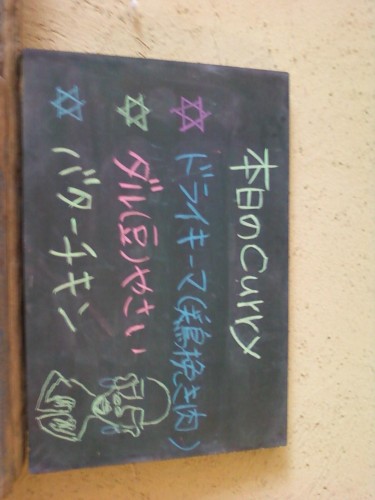 本日のCurry
ドライキーマ(鶏挽き肉)
ダル(豆)やさい
バターチキン